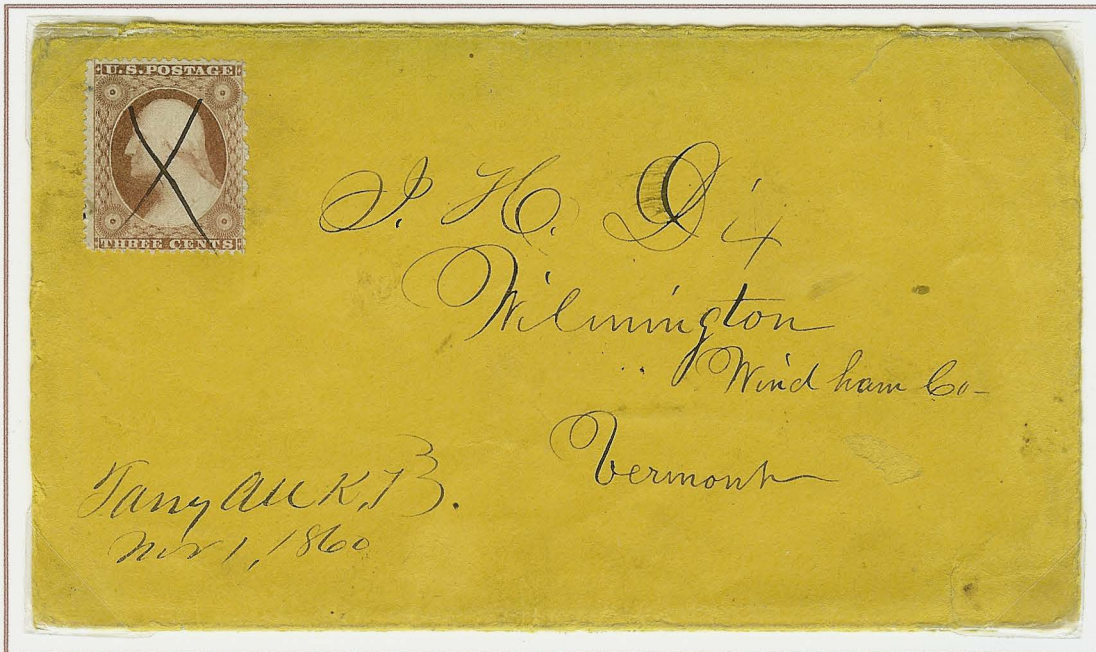 U.S. POSTAGE
THREE CENTS
J. H. Dix
Wilmington
Windham Co-
Vermont
Nov 1, 1860